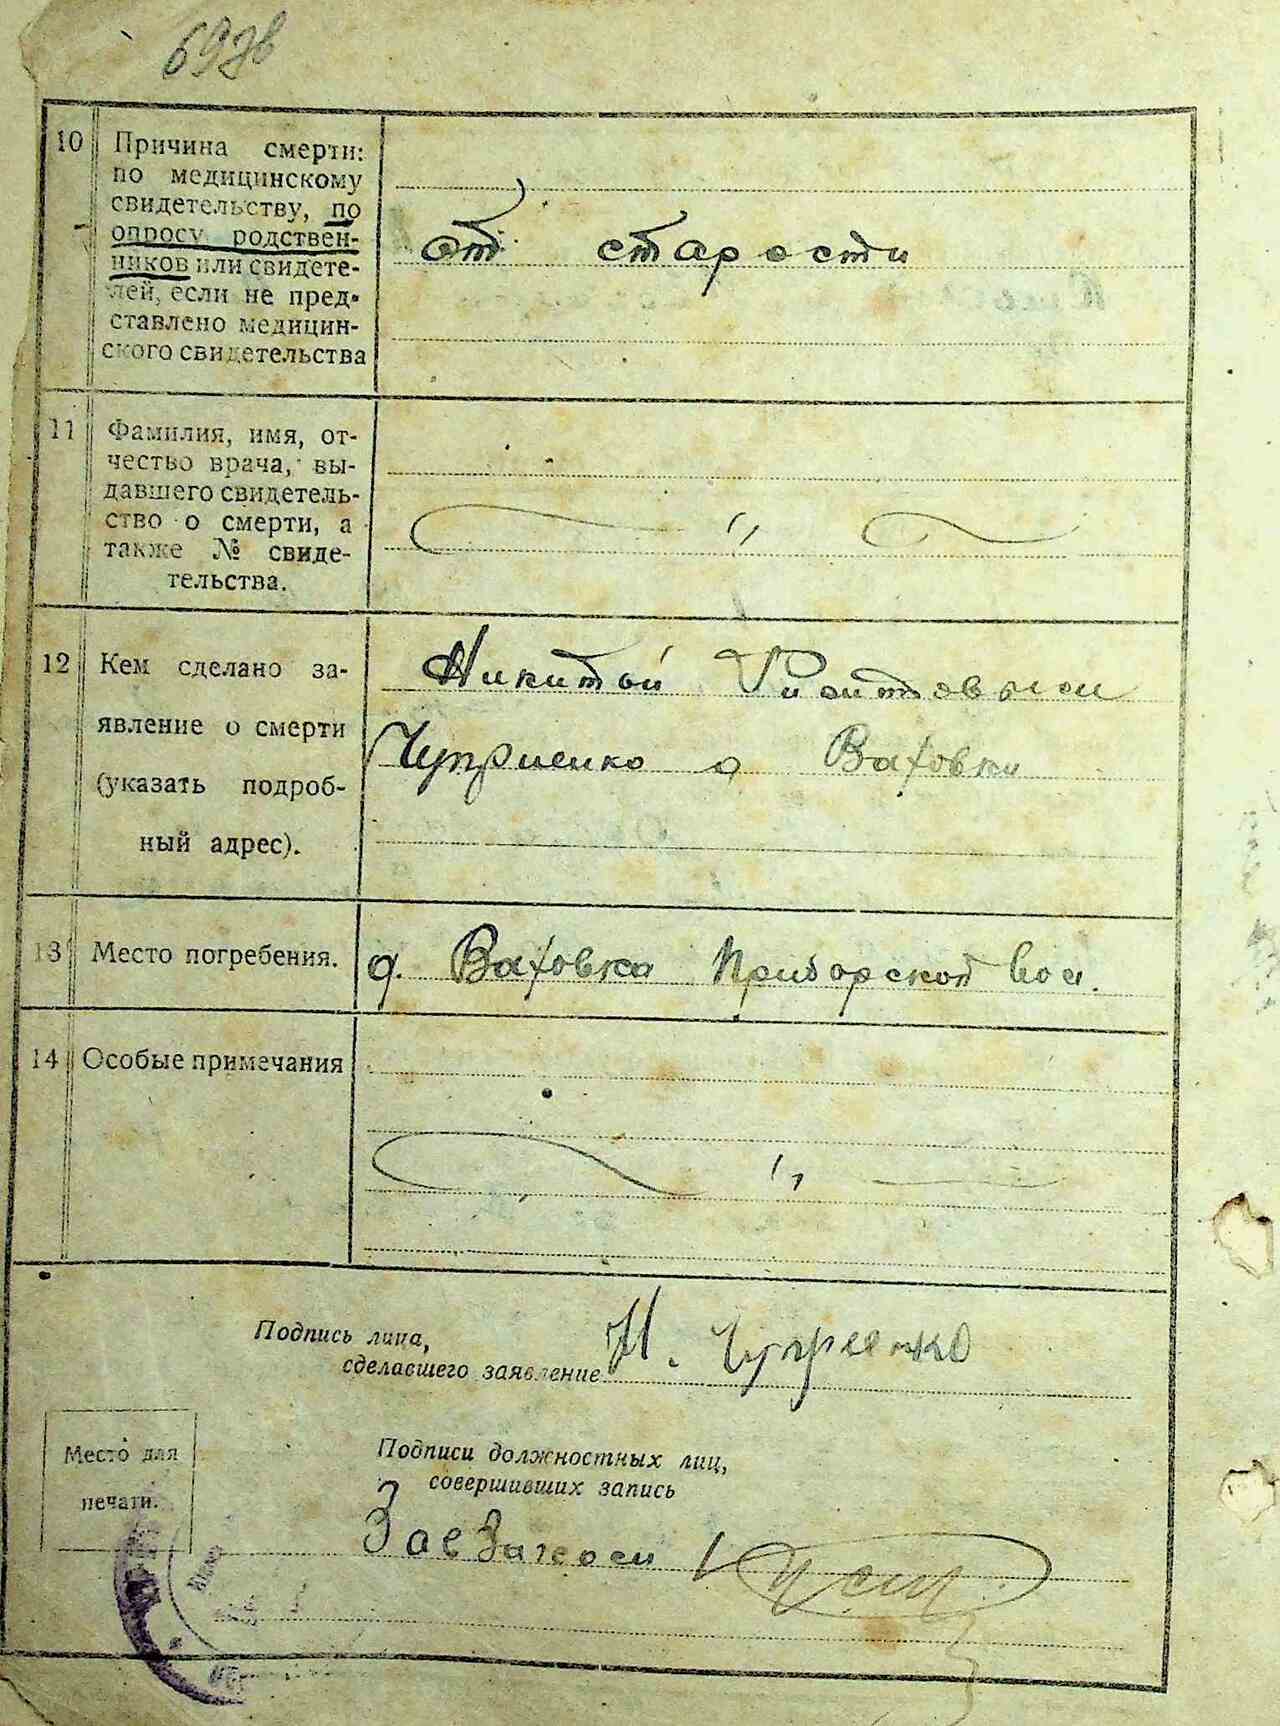 69зв
10 Причина смерти:
по медицинскому
свидетельству, по
опросу родствен-
ников или свидете-
лей, если не пред-
ставлено медицин-
ского свидетельства
от старости
11 Фамилия, имя, от-
чество врача, вы-
давшего свидетель-
ство о смерти, а
также № свиде-
тельства.
"
12 Кем сделано за-
явление о смерти
(указать подроб-
ный адрес).
Никитой
Чуприенко д Ваховки
13 Место погребения. д. Ваховка Приборской вол.
14 Особые примечания
"
Подпись лица,
сделавшего заявление Н. Чуприенко
Место для
печати.
Подписи должностных лиц,
совершивших запись
Зав Загсом